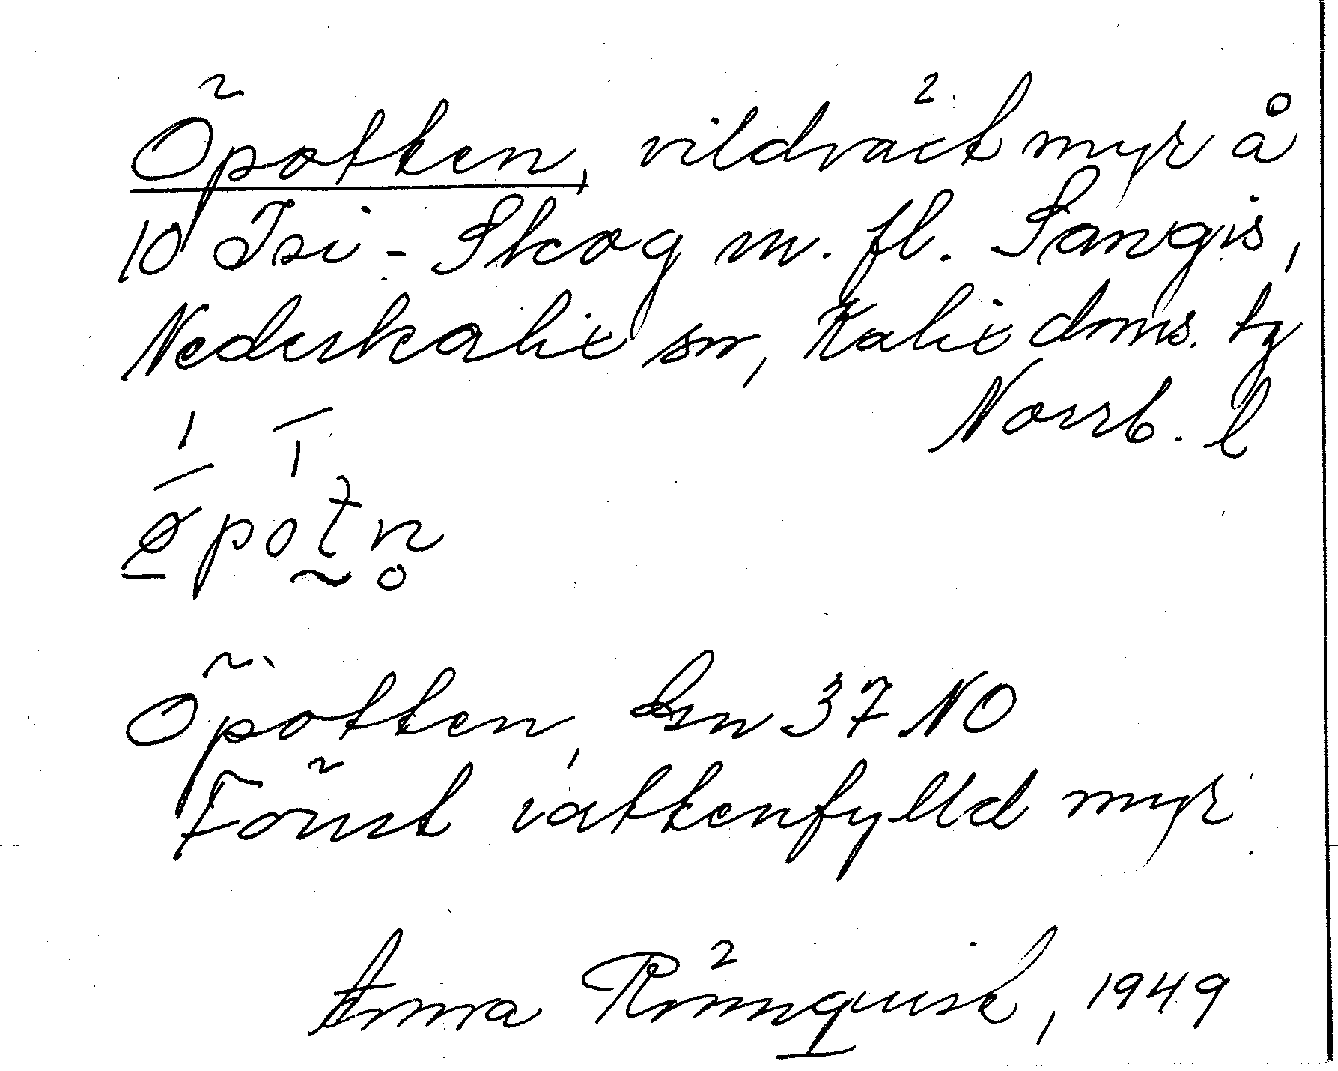 Öpotten, vildväxt myr å
10 Isi-Skog m. fl. Sangis,
Nederkalix sn, Kalix doms. tg
Norrb. l
öpotn̥
Öpotten, Gen 37 NO
Förut vattenfylld myr
Anna Rönnquist, 1949